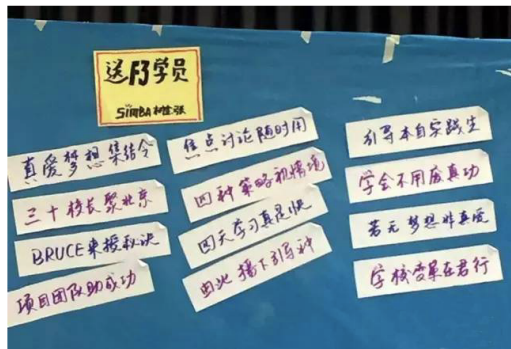 送F3学员
SIMBA
真爱梦想集结令
三十校长聚北京
BRUCE来授秘诀
项目团队助成功
焦点讨论随时用
四种策略视情境
四天学习真是快
由此播下引导种
引导本自实践生
学会不用废真功
若无梦想非真爱
学校变革在君行